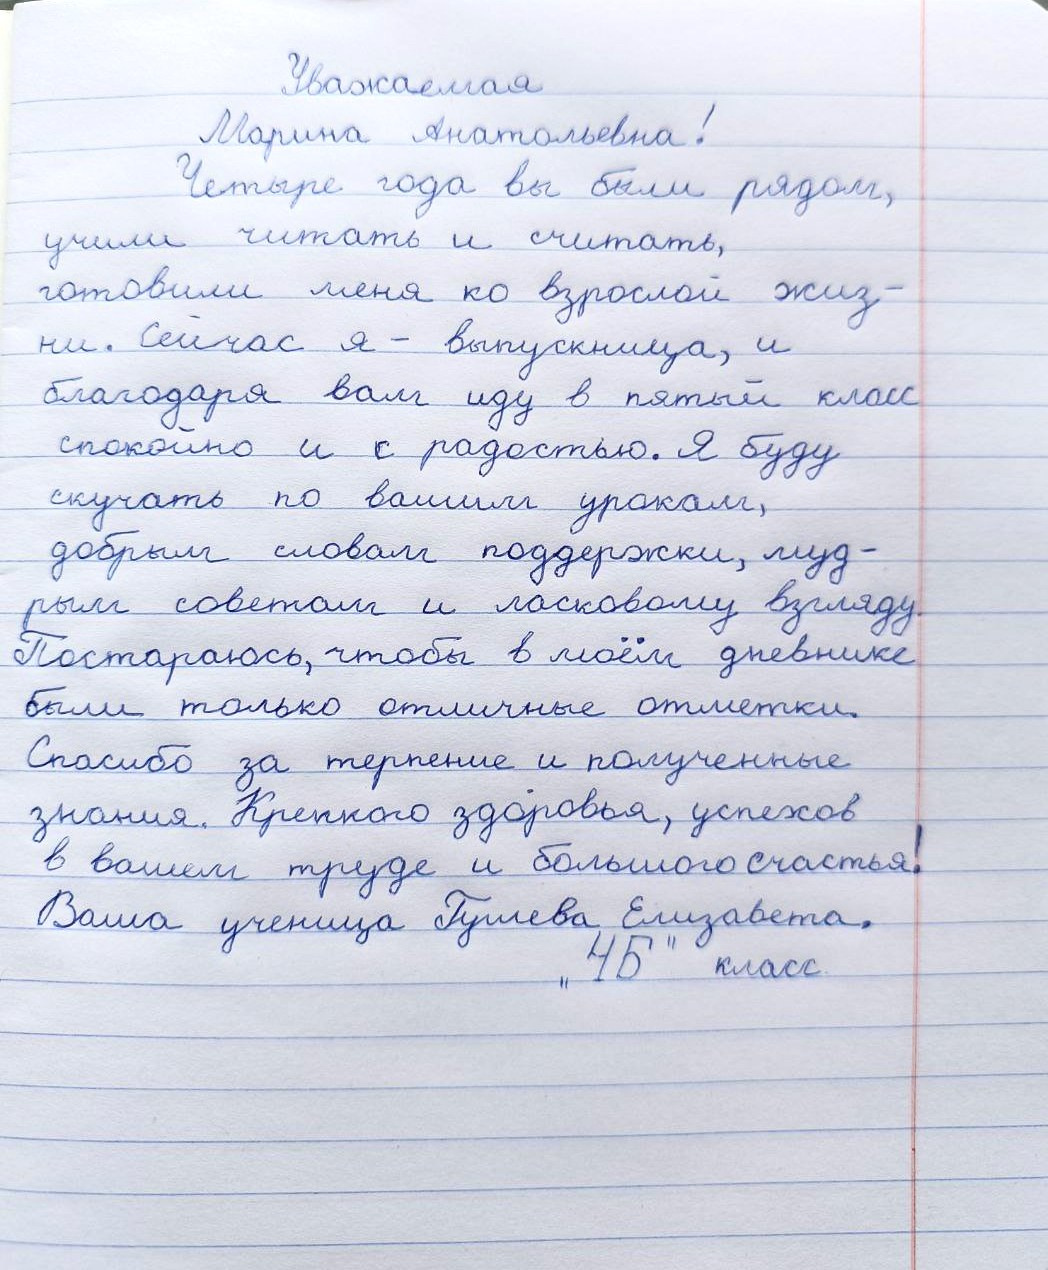 Уважаемая
Марина Анатольевна!
Четыре года вы были рядом,
учили читать и считать,
готовили меня ко взрослой жиз-
ни. Сейчас я - выпускница, и
благодаря вам иду в пятый класс
спокойно и с радостью. Я буду
скучать по вашим урокам,
добрым словам поддержки, муд-
рым советам и ласковому взгляду.
Постараюсь, чтобы в моём дневнике
были только отличные отметки.
Спасибо за терпение и полученные
знания. Крепкого здоровья, успехов
в вашем труде и большого счастья!
Ваша ученица Елизавета.
„4Б" класс